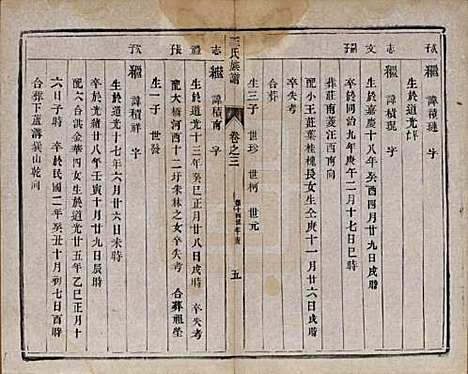 繼 諱積璉 字
生於道光
志繼 諱積現 字
生於嘉慶十八年癸酉四月廿九日戌時
卒於同治九年庚午二月廿八日
葬莊南
配小王莊葉桂槐長女生庚十一月廿六日戌時
卒失考
合葬
生三子 世珍 世柯 世元
王氏族譜 卷之三 五
志繼 諱積南 字
生於道光十三年癸巳正月廿八日戌時 卒失考
配大橋河西十二圩朱林之女卒失考 合葬祖塋
生一子 世發
繼 諱積祥 字
生於道光十七年六月廿六日未時
卒於光緒廿八年壬寅十月廿九日辰時
配六合洪金華四女生於道光廿四年五月廿
六日子時 卒於民國二年癸丑十月初七日酉時
合葬下蘆溝巽山乾向